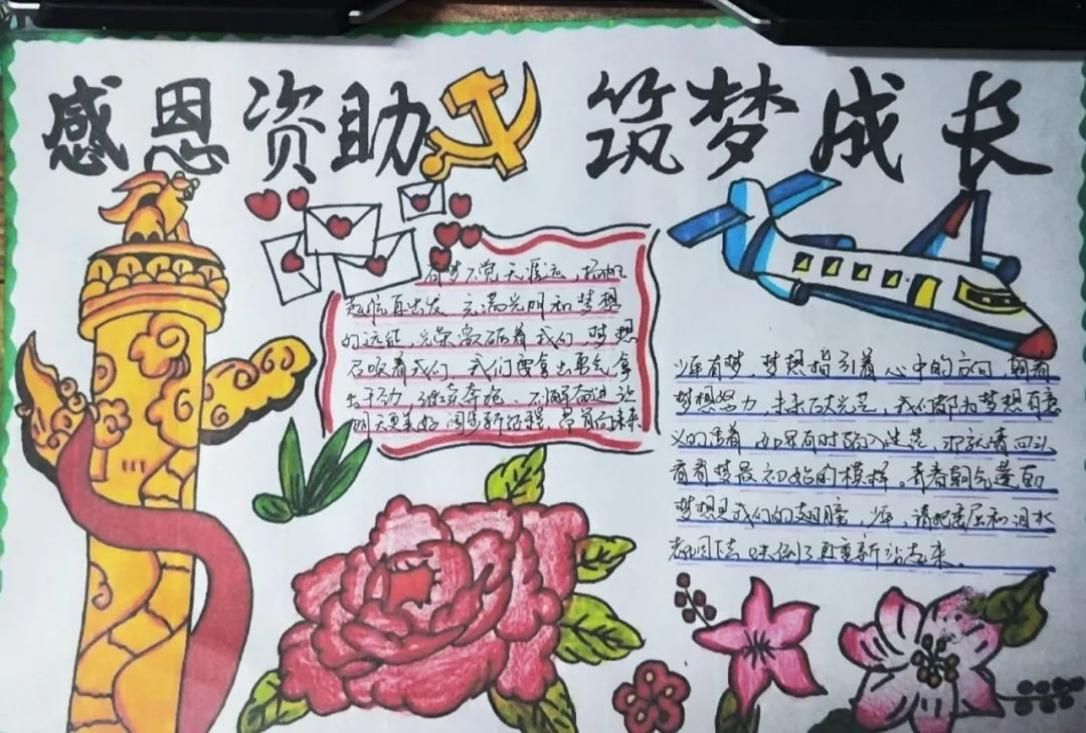 感恩资助 筑梦成长
有梦不觉天涯远，扬帆
起航再出发，充满光明和梦想
的远征，光荣激励着我们，梦想
召唤着我们，我们要拿出勇气拿
出干劲，继续奔跑、不懈奋进让
明天更美好 阔步新征程，昂首向未来
少年有梦，梦想指引着心中的方向，朝着
梦想努力，未来放光芒，我们都为梦想有意
义的活着，如果有时陷入迷茫，那就请回头
看看梦最初始的模样。青春朝气蓬勃
梦想是我们的翅膀，少年，请把委屈和泪水
都咽下去 跌倒了再重新站起来。